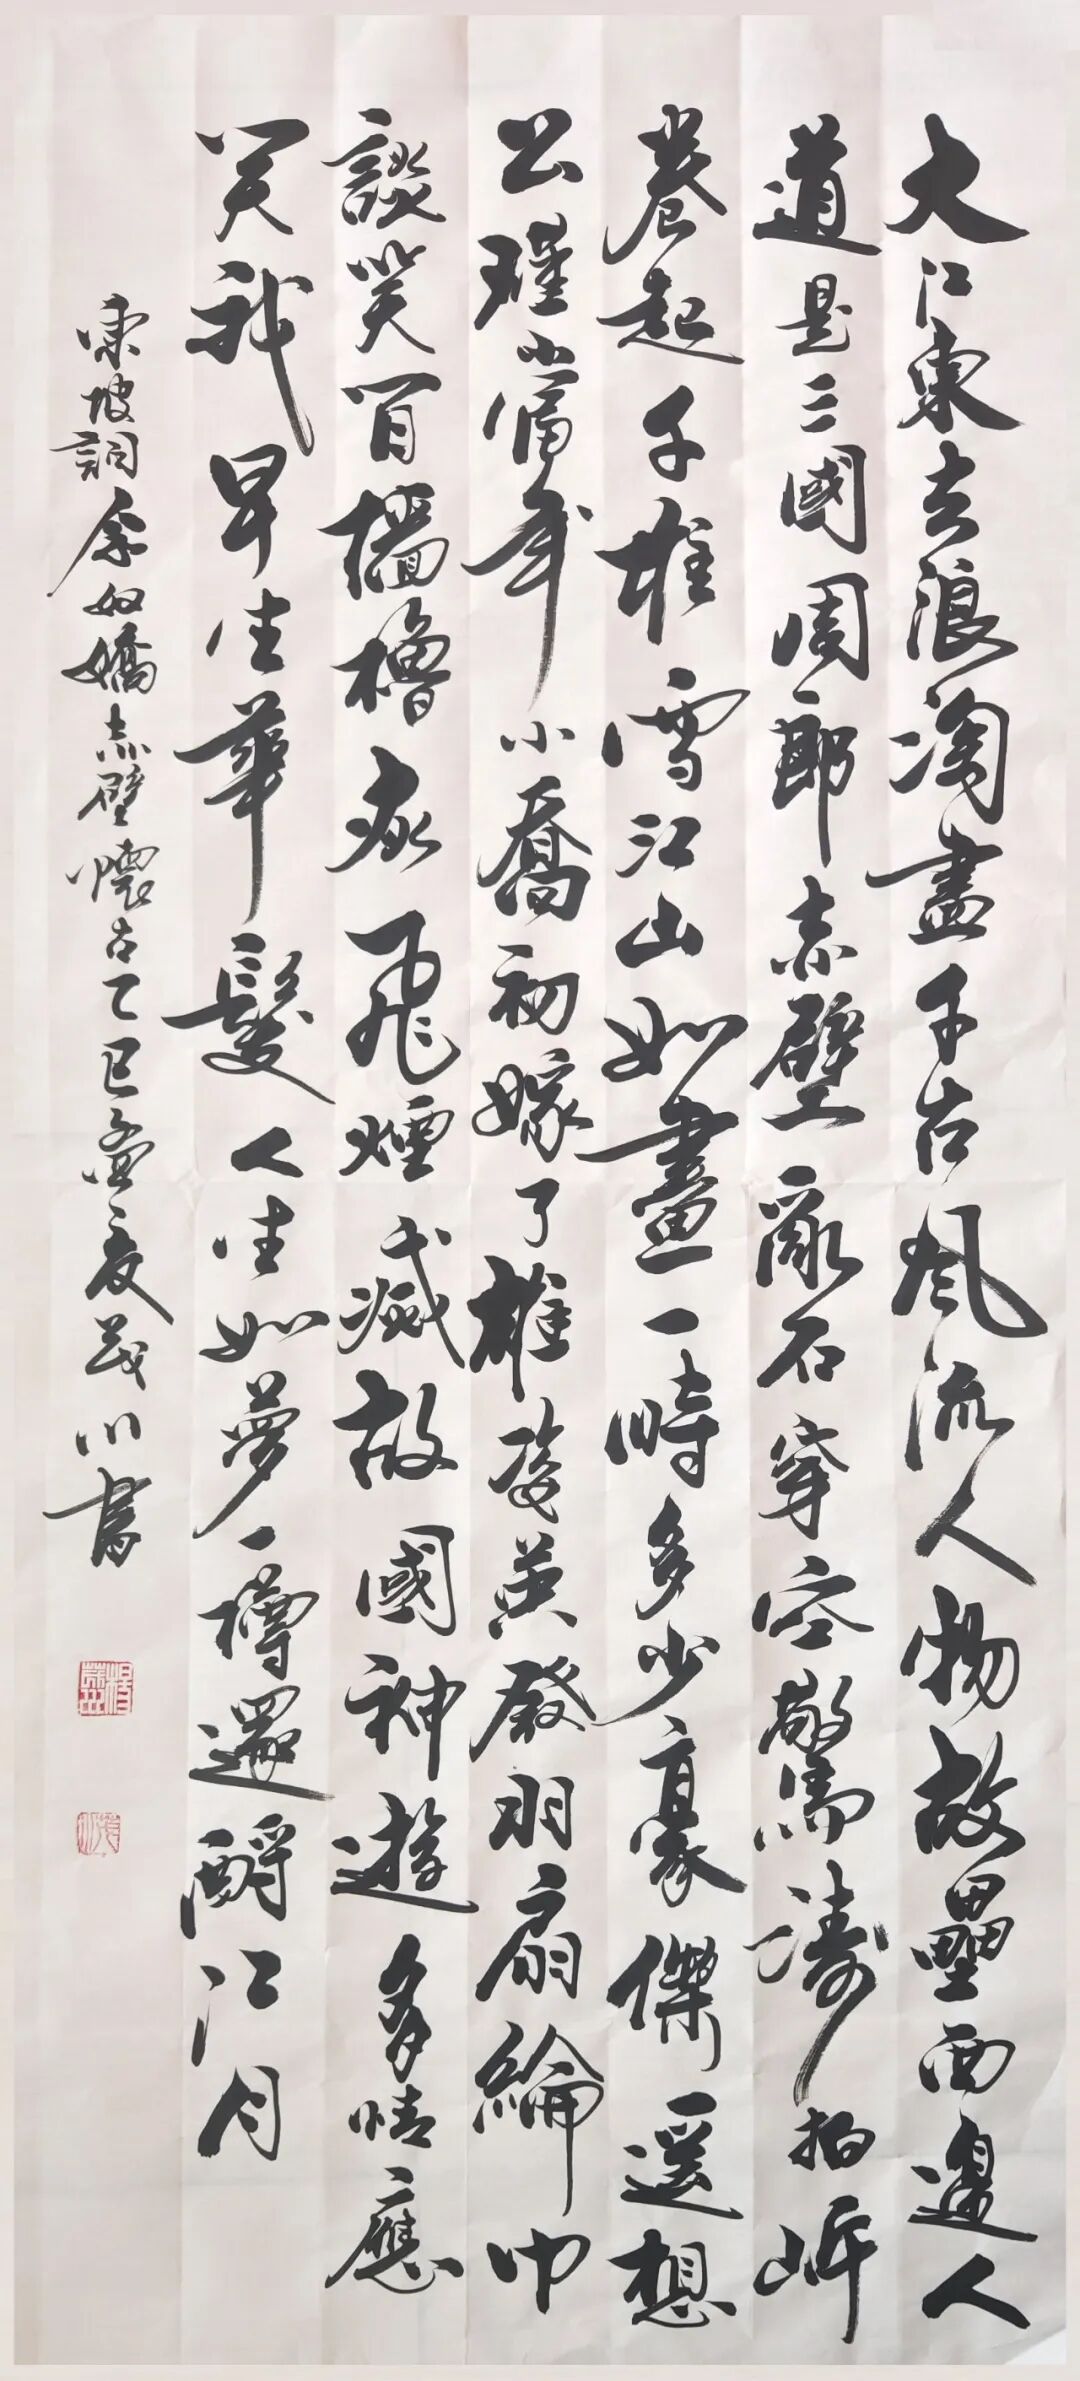 大江東去浪淘盡千古風流人物故壘西邊人
道是三國周郎赤壁亂石穿空驚濤拍岸
卷起千堆雪江山如畫一時多少豪傑遥想
公瑾當年小喬初嫁了雄姿英發羽扇綸巾
談笑間檣櫓灰飛煙滅故國神遊多情應
笑我早生華髮人生如夢一樽還酹江月
東坡詞念奴嬌赤壁懷古乙巳孟夏茂川書